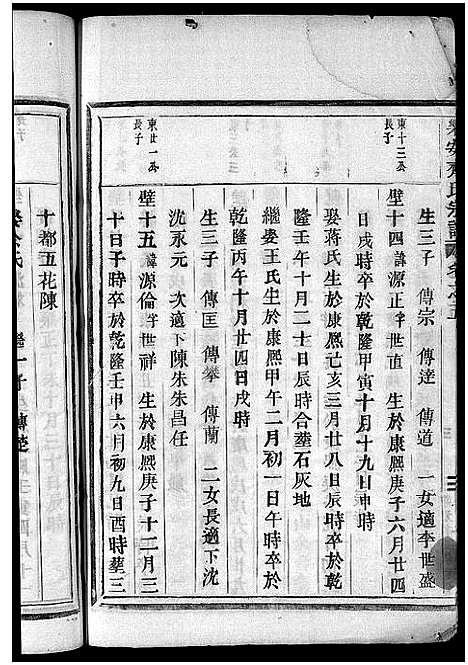 生三子 傳宗 傳達 傳道 一女適李世盛
東十三公長子
壁十四諱源正字世直 生於康熙庚子六月廿四
日戌時卒於乾隆甲寅十月十九日申時
娶蔣氏生於康熙己亥三月廿八日辰時卒於乾
隆壬午十月二十日辰時合塟石灰地
繼娶王氏生於康熙甲午二月初一日午時卒於
乾隆丙午十月廿四日戌時
生三子 傳匡 傳攀 傳蘭 二女長適下沈
沈永元 次適下陳朱朱昌任
東廿一公長子
壁十五諱源倫字世祥 生於康熙庚子十二月三
十日子時卒於乾隆壬申六月初九日酉時塟三
十都五花陳